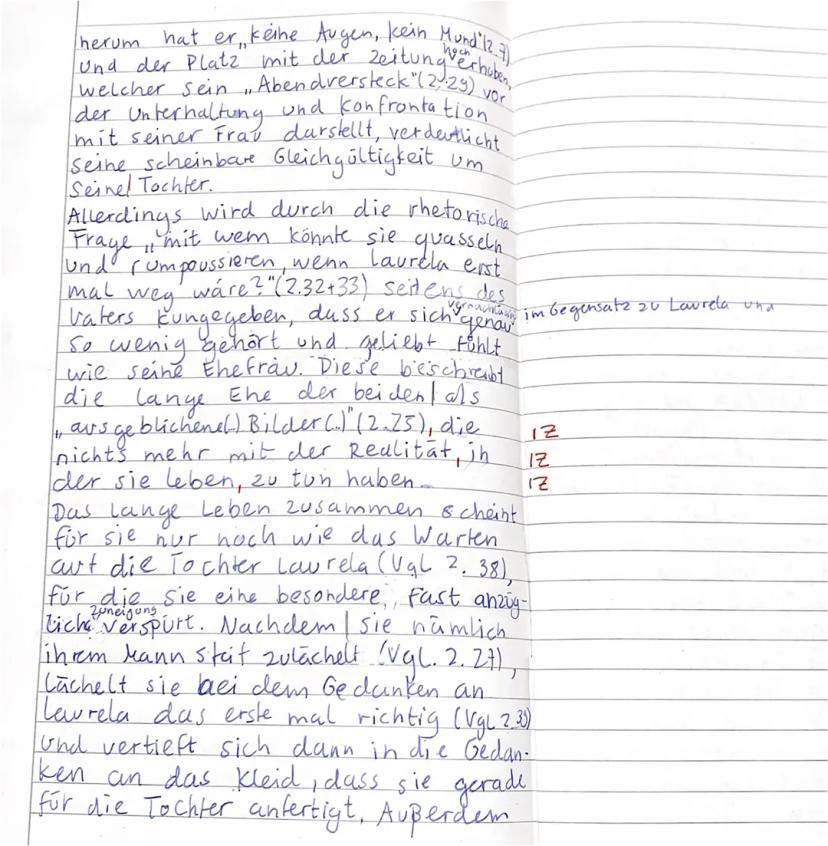 herum hat er „keine Augen, kein Mund" (Z.7)
und der Platz mit der Zeitung noch erhoben,
welcher sein „Abendversteck" (Z.29) vor
der Unterhaltung und Konfrontation
mit seiner Frau darstellt, verdeutlicht
seine scheinbare Gleichgültigkeit um
seine Tochter.
Allerdings wird durch die rhetorische
Frage „mit wem könnte sie quasseln
und rumpoussieren, wenn Laurela erst
mal weg wäre?" (Z.32+33) seitens des
Vaters kungegeben, dass er sich genau im Gegensatz zu Laurela und
so wenig gehört und geliebt fühlt
wie seine Ehefrau. Diese beschreibt
die lange Ehe der beiden als
„ausgeblichene(..) Bilder(..)" (Z.25), die IZ
nichts mehr mit der Realität, in IZ
der sie leben, zu tun haben. IZ
Das lange Leben zusammen scheint
für sie nur noch wie das Warten
auf die Tochter Laurela (Vgl Z. 38),
für die sie eine besondere, fast anzüg-
liche Zuneigung verspürt. Nachdem sie nämlich
ihrem Mann steif zulächelt (Vgl. Z. 27),
lächelt sie bei dem Gedanken an
Laurela das erste mal richtig (Vgl Z.39)
und vertieft sich dann in die Gedan-
ken an das Kleid, dass sie gerade
für die Tochter anfertigt. Außerdem